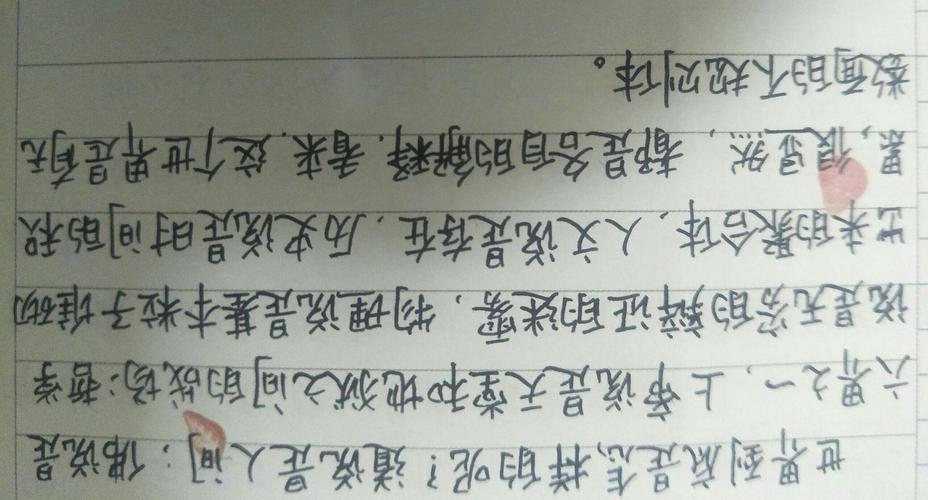 世界到底是怎样的呢？道说是人间；佛说是
六界之一，上帝说是天堂和地狱之间的战场；哲学
说是无穷的辩证的迷雾，物理说是基本粒子堆砌
出来的聚合体，人文说是存在，历史说是时间的积
累，很显然，都是各自的解释．看来，这个世界是有无
数面的不规则体。